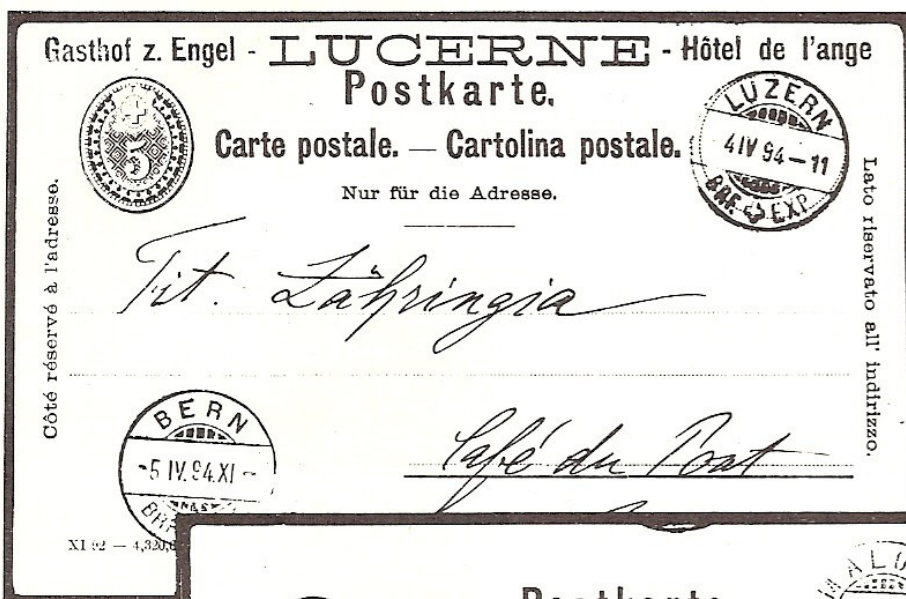 Gasthof z. Engel - LUCERNE - Hôtel de l'ange
Postkarte.
Carte postale. — Cartolina postale.
Nur für die Adresse.
5
LUZERN
4 IV 94 – 11
BRF. EXP.
Côté réservé à l'adresse.
Lato riservato all' indirizzo.
Tit. Zähringia
Café du
BERN
-5 IV.94.XI -
XI 92 — 4,320,
Postkarte